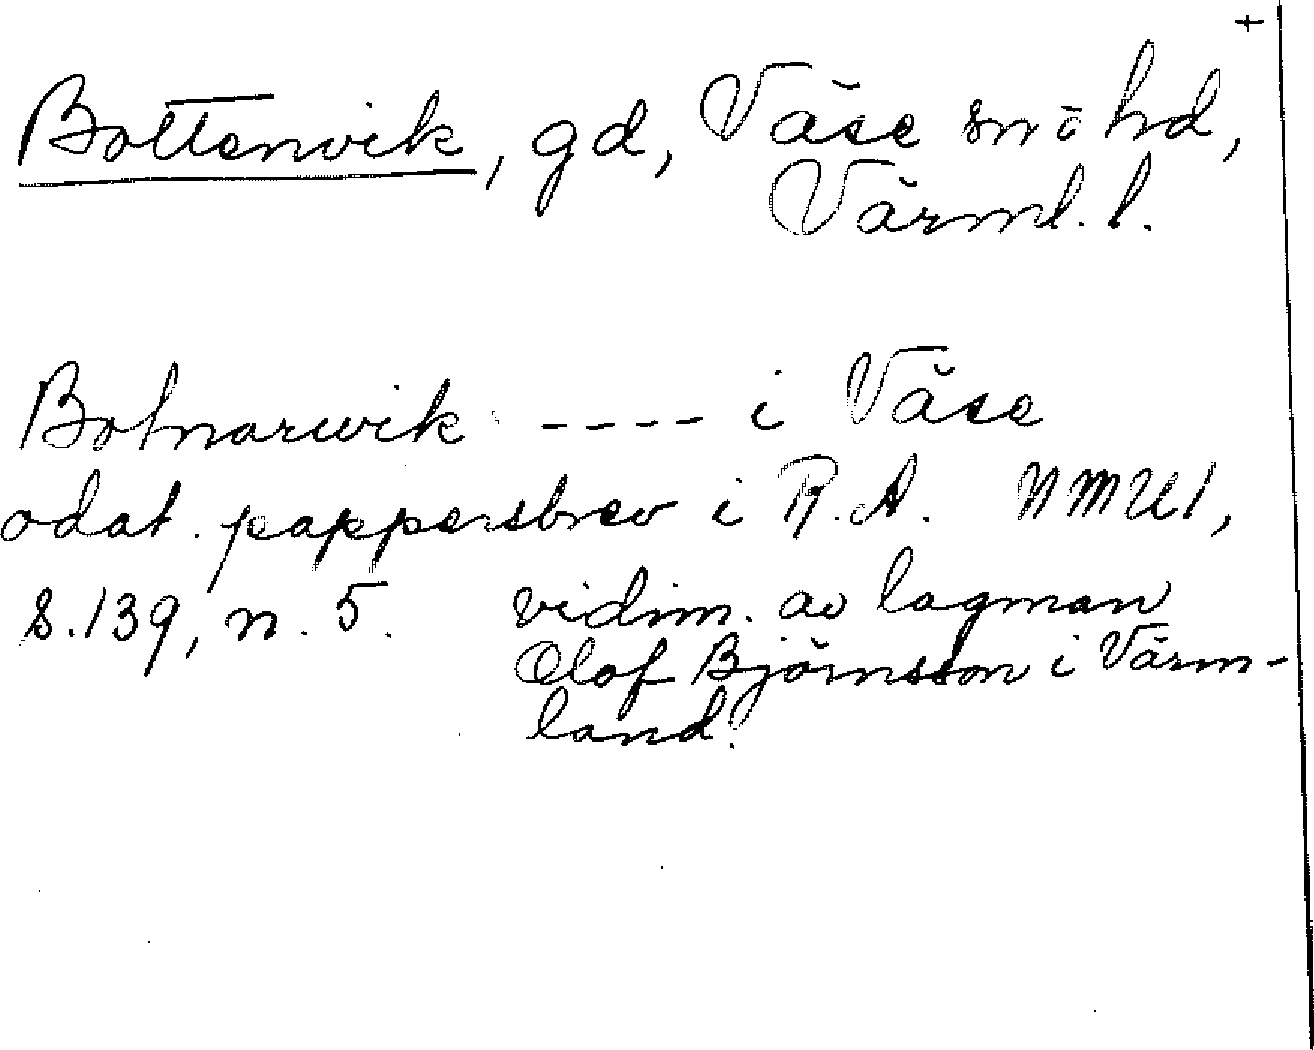 +
Bottenvik, gd, Väse sn ö hd,
Värml. l.
Botnarwik ---- i Väse
odat. pappersbrev i R.A. NMU1,
s.139, n. 5. vidim. av lagman
Olof Björnsson i Värm-
land.